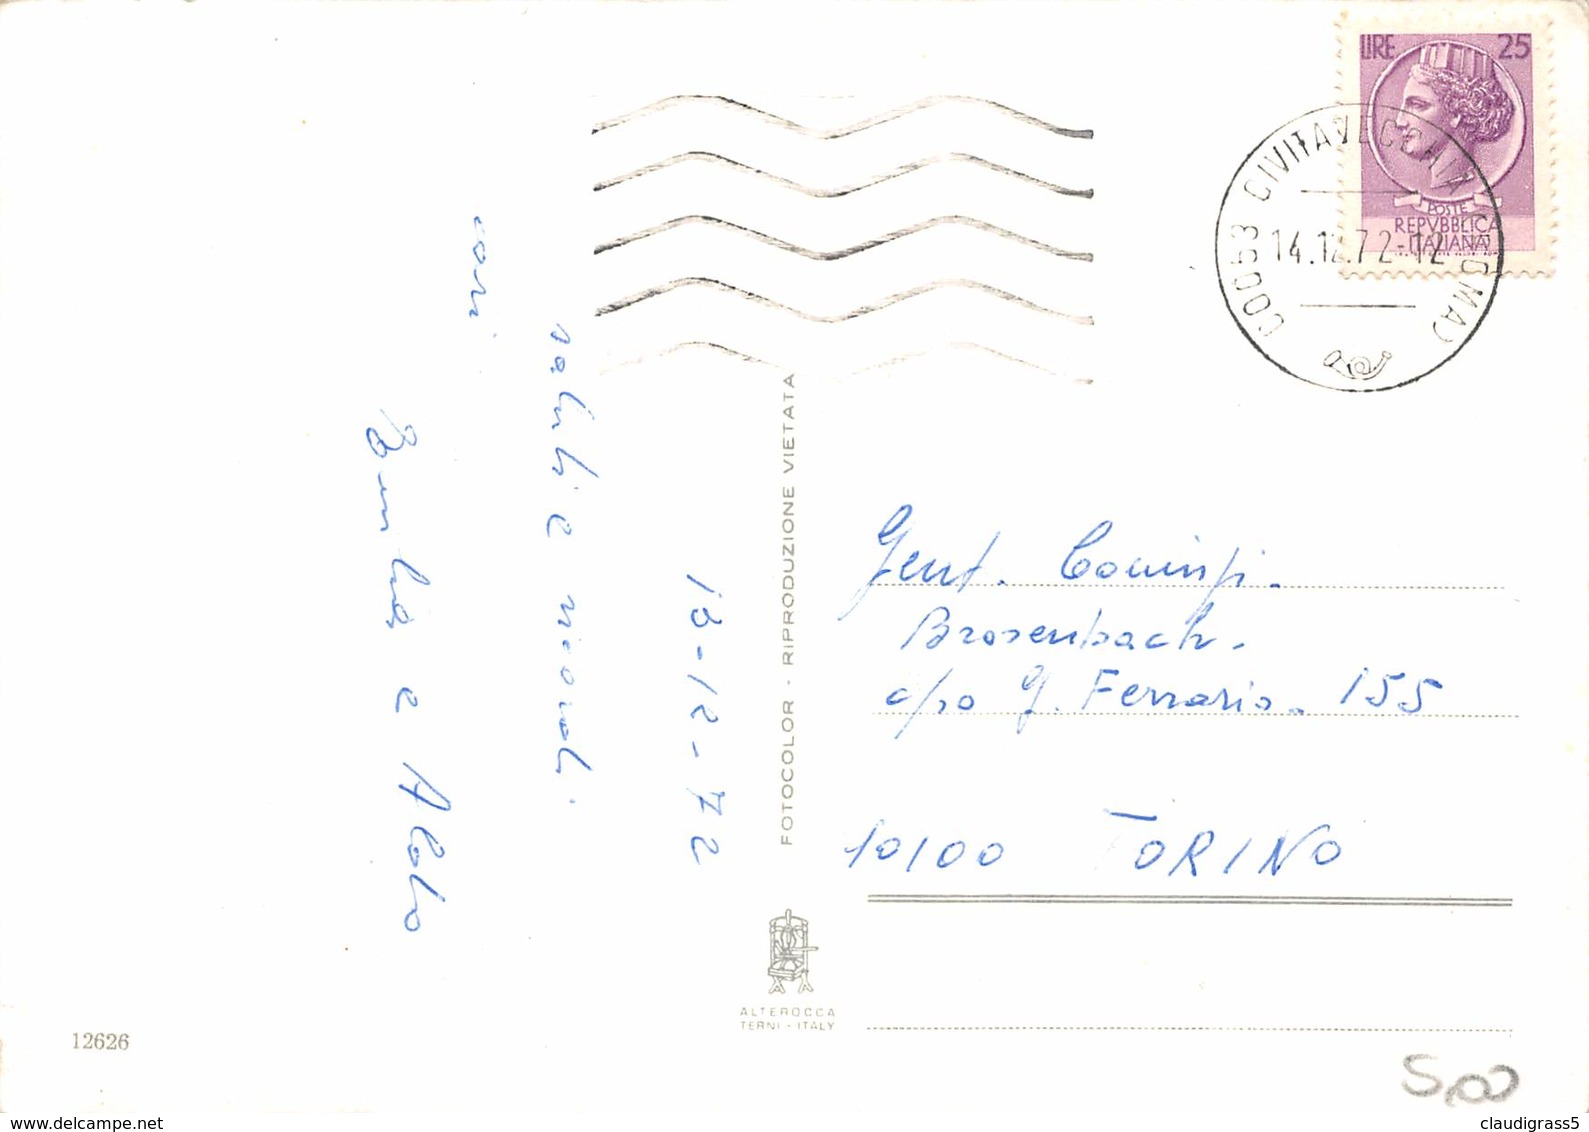 LIRE 25
POSTE
REPVBBLICA
ITALIANA
00053 CIVITAVECCHIA (ROMA)
14.12.72-12
13-12-72
cari
saluti e ricordi
Emilia e Aldo
FOTOCOLOR - RIPRODUZIONE VIETATA
Gent.
Brosenbach.
c/o G. Ferraris. 155
10100 TORINO
ALTEROCCA
TERNI - ITALY
12626
5,00
www.delcampe.net
claudigrass5